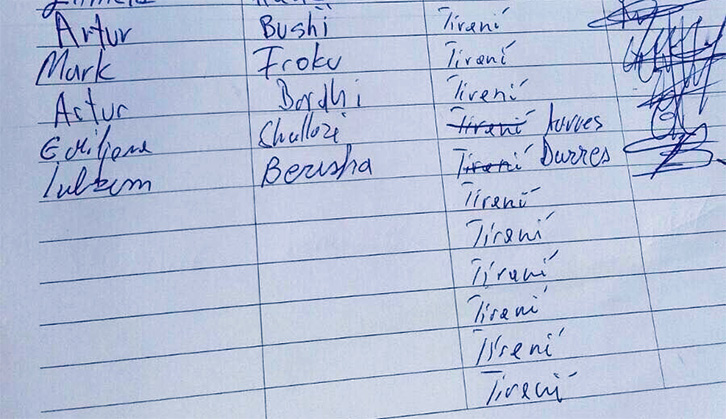 Artur Bushi Tiranë
Mark Froku Tiranë
Artur Bardhi Tiranë
Tiranë durres
Berisha Tiranë Durres
Tiranë
Tiranë
Tiranë
Tiranë
Tiranë
Tiranë